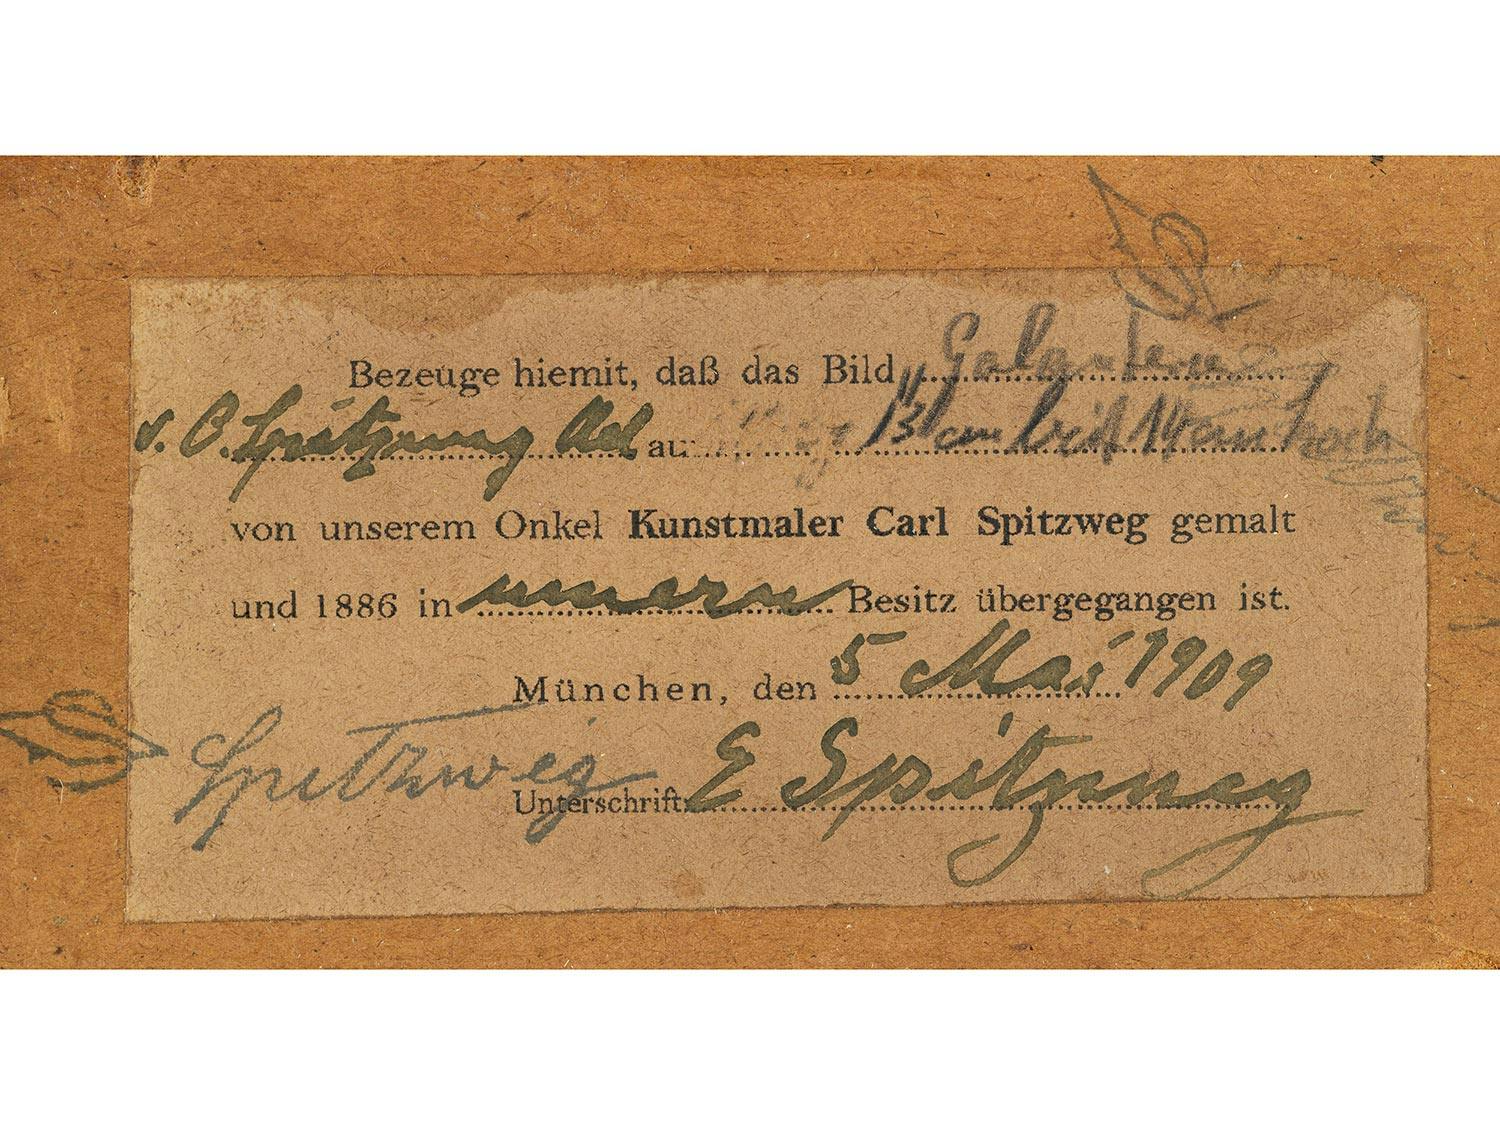 Bezeuge hiemit, daß das Bild „Galanterie
v. C. Spitzweg au: 13 cm breit 14 cm hoch
von unserem Onkel Kunstmaler Carl Spitzweg gemalt
und 1886 in unseren Besitz übergegangen ist.
München, den 5 Mai 1909
Spitzweg
Unterschrift: E Spitzweg